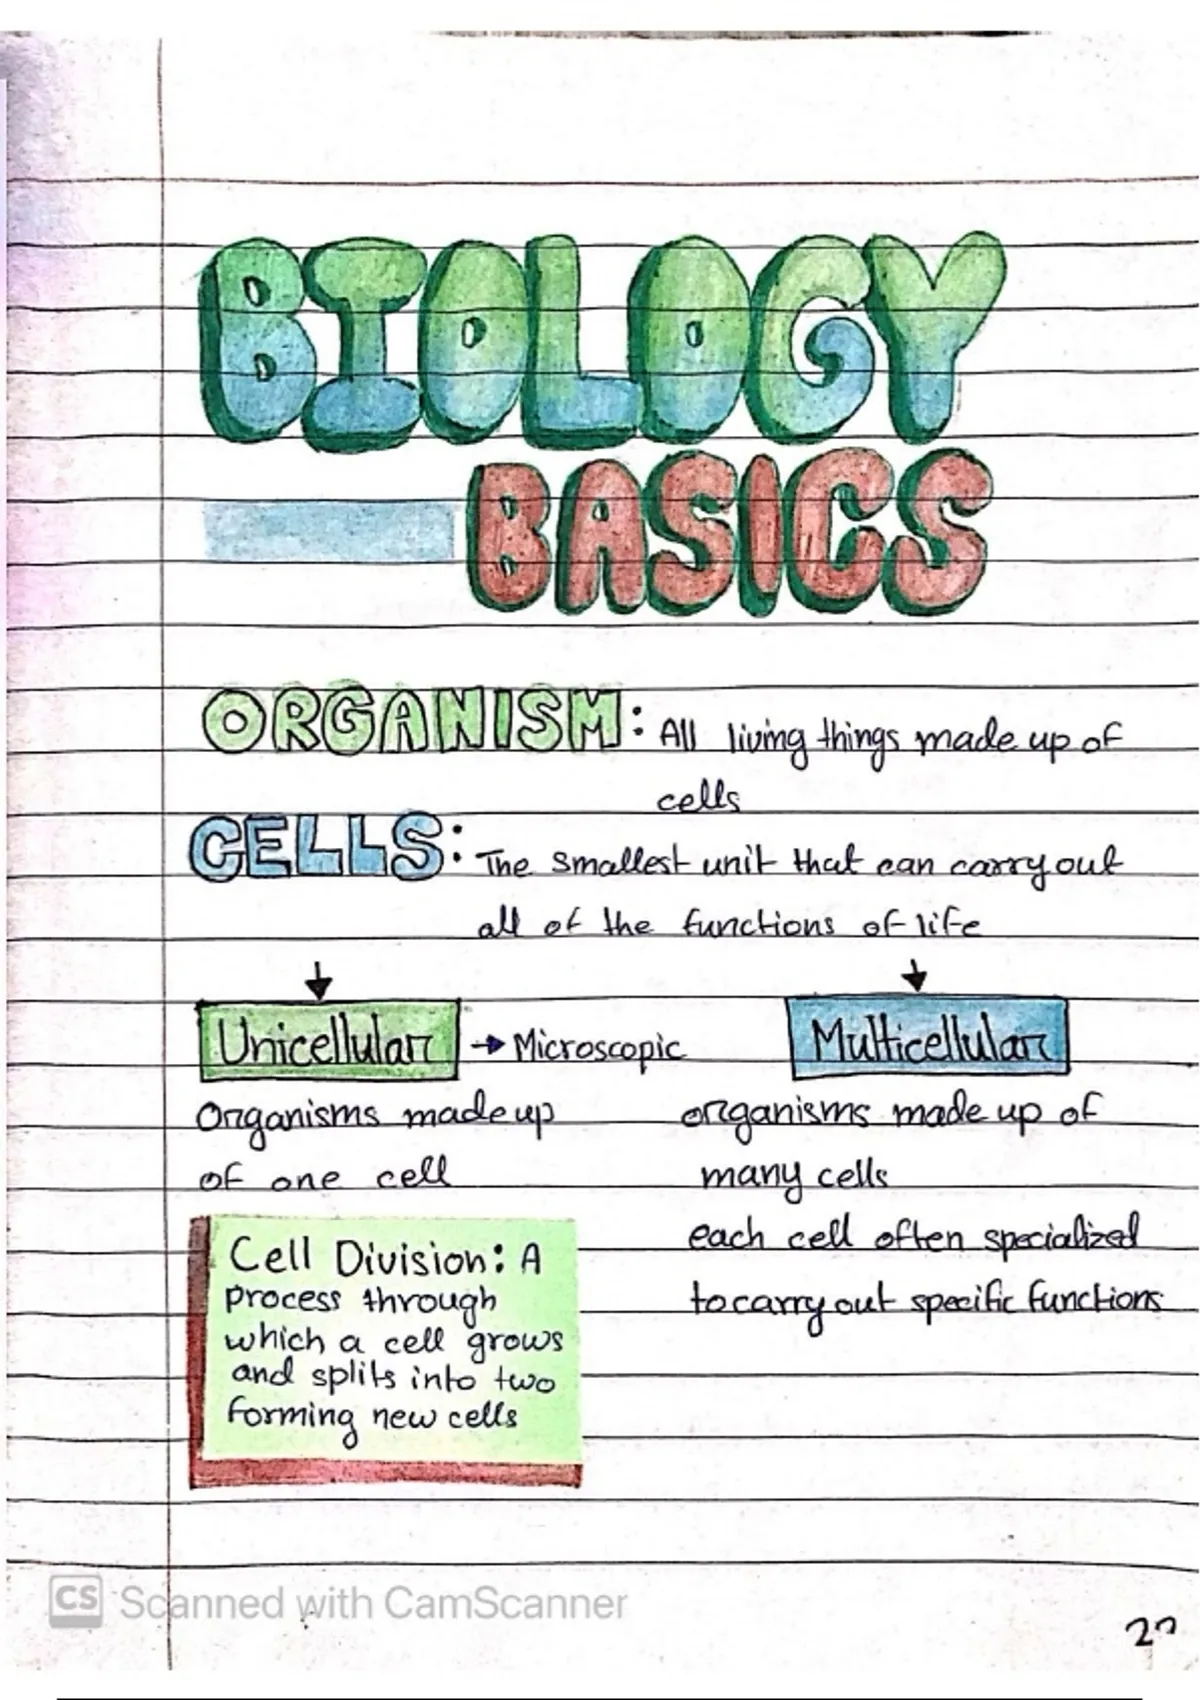 BIOLOGY
BASICS
ORGANISM: All living things made up of
cells
CELLS: The smallest unit that can carry out
all of the functions of life
Unicellular → Microscopic
Organisms made up
of one cell
Multicellular
organisms made up of
many cells
each cell often specialized
to carry out specific functions
Cell Division: A
process through
which a cell grows
and splits into two
forming new cells
CS Scanned with CamScanner